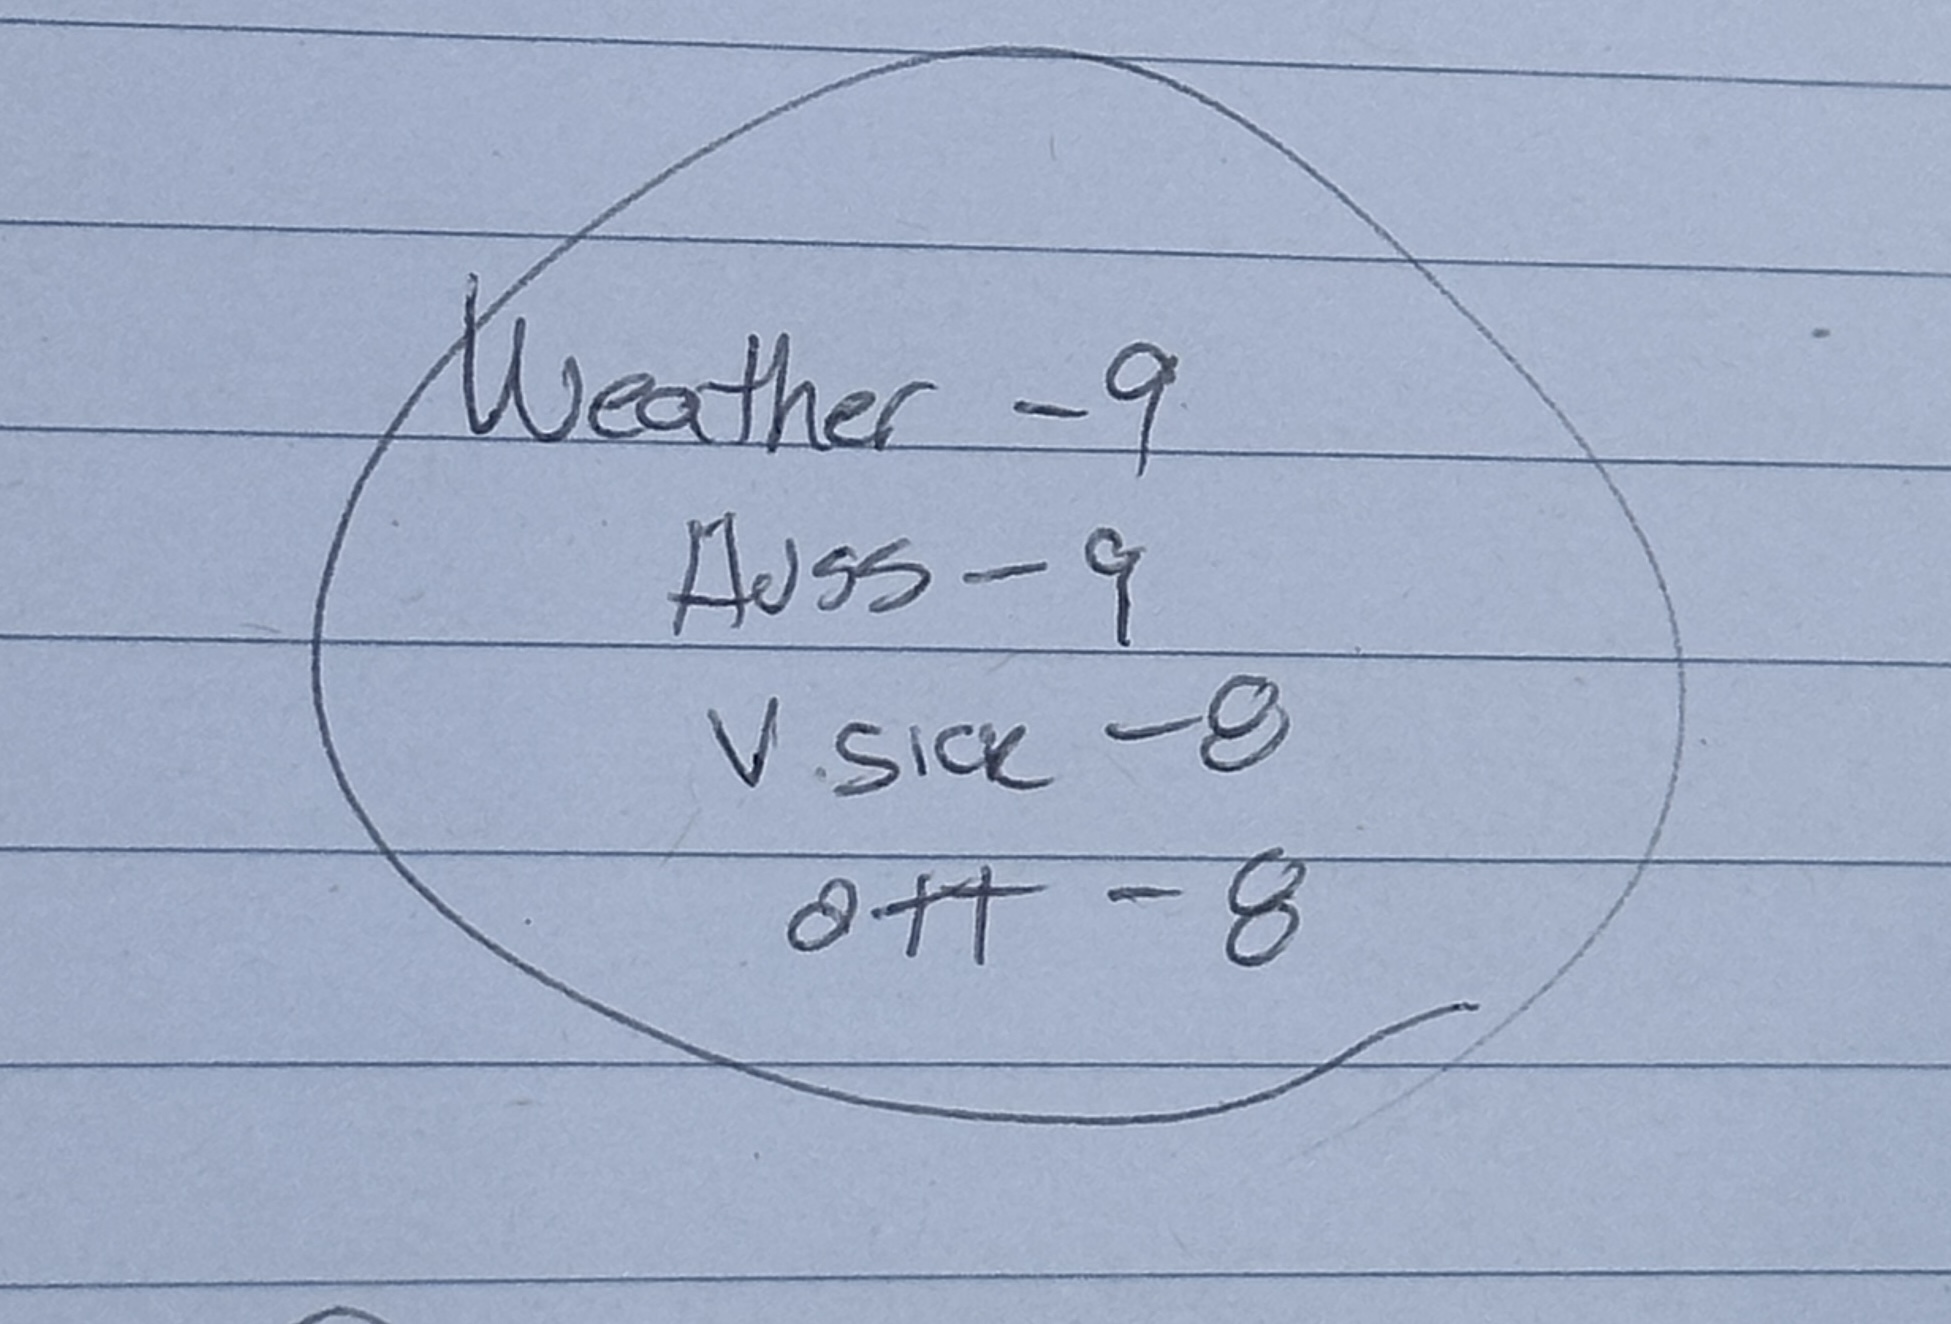 Weather - 9
Auss - 9
V. sick - 8
ott - 8